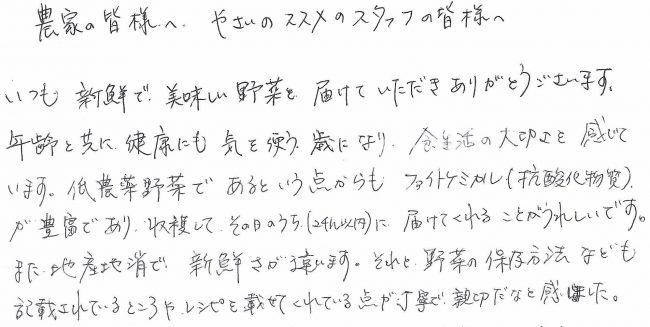 農家の皆様へ. やさいのススメのスタッフの皆様へ
いつも 新鮮で 美味しい野菜を 届けていただきありがとうございます。
年齢と共に 健康にも 気を使う 歳になり, 食生活の大切さを 感じて
います。低農薬野菜で あるという点からも ファイトケミカル(抗酸化物質)
が 豊富であり, 収穫して その日のうち(24h以内)に 届けてくれる ことがうれしいです。
また 地産地消で 新鮮さが違います。それと 野菜の 保存方法 なども
記載されているところや レシピを 載せてくれている 点が 丁寧で 親切だなと感じました。